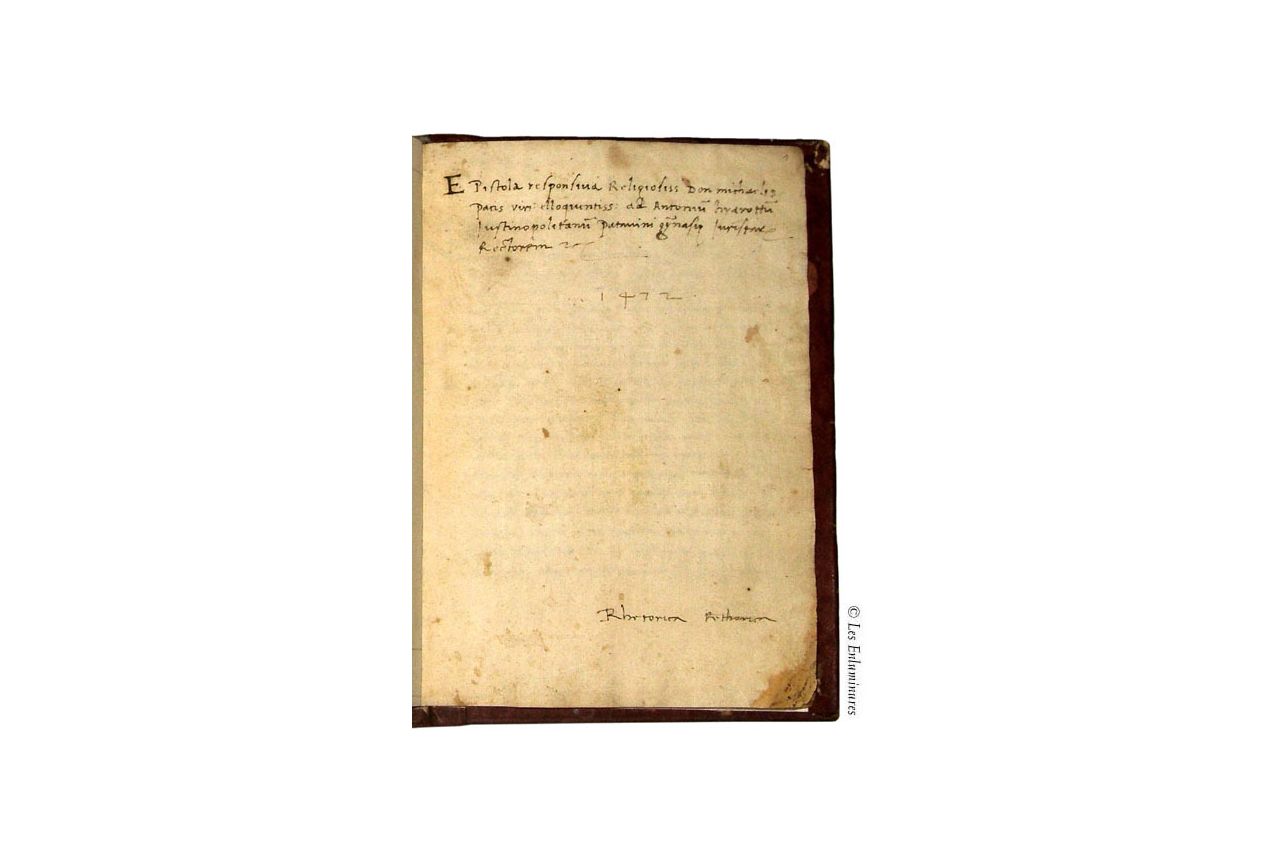 EPistola responsiva Religiosiss Don michaelis
Pacis viri elloquentiss: ad Antoniũ
Iustinopolitanũ Patavini gỹnasij Iurist
Rectorem
1472
Rhetorica Rethorica
© Les Enluminures